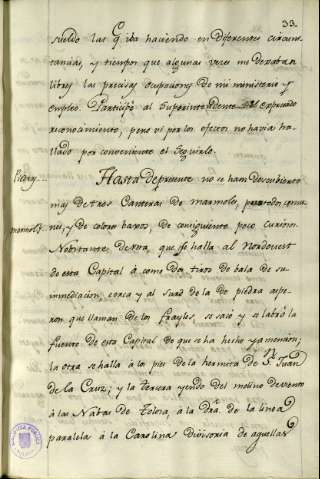 33.
sueldo las q. iba haciendo en diferentes circuns-
tancias, y tiempos que algunas veces me dexaban
libres las precisas ocupaciones de mi ministerio y
empleo. Participé al Superintendente el expresado
reconocimiento, pero vi por los efectos no havia ha-
llado por conveniente el seguirle.
Hasta de presente no se han descubierto
mas de tres Canteras de marmoles, pero todos comu-
nes, y de colores baxos, de consiguiente poco curiosos.
marmoles.
Nobstante de esta, que se halla al Nordovest
de esta Capital á como dos tiros de bala de su
inmediacion, cerca y al surd de la de piedra aspe-
ron que llaman de los frayles, se sacó y se labró la
fuente de esta Capital de que se ha hecho ya mencion;
la otra se halla á los pies de la hermita de Sn. Juan
de la Cruz; y la tercera yendo del molino de viento
á las Navas de Tolosa, á la dra. de la linea
paralela á la Carolina divisoria de aquellas